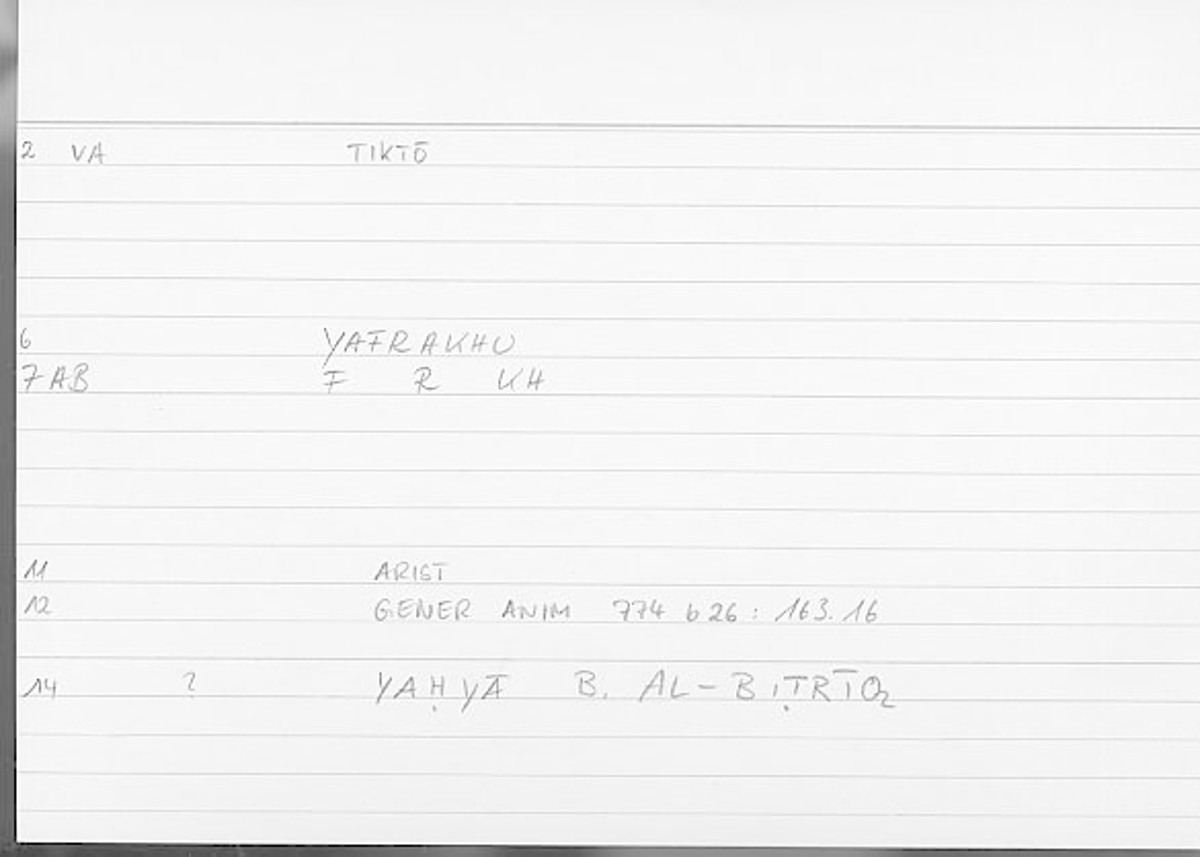 2 VA TIKTŌ
6 YAFRAKHU
7 AB F R KH
11 ARIST
12 GENER ANIM 774 b 26 : 163.16
14 ? YAḤYĀ B. AL-BIṬRĪQ